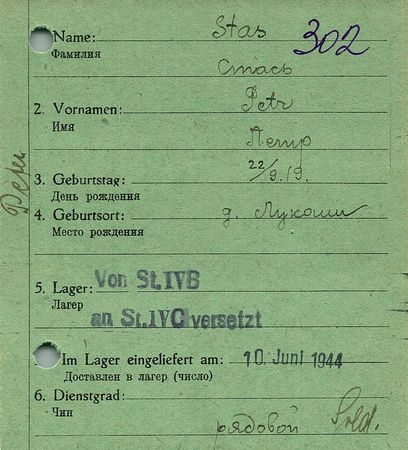 Name: Stas 302
Фамилия
Стась
2. Vornamen: Petr
Имя
Петр
3. Geburtstag: 22/9.19.
День рождения
4. Geburtsort: д. Лукаши
Место рождения
5. Lager: Von St. IVB
Лагер
an St. IVC versetzt
Im Lager eingeliefert am: 10. Juni 1944
Доставлен в лагер (число)
6. Dienstgrad: Sold.
Чин
рядовой
Peter